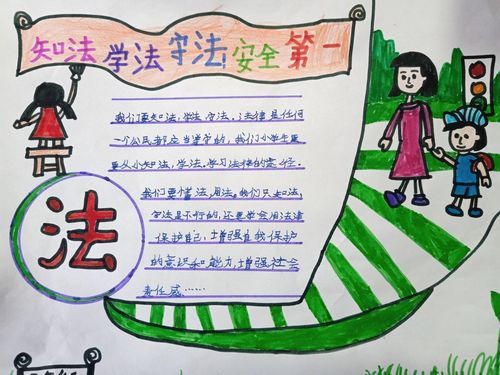 知法学法守法安全第一
我们要知法,学法,守法,法律是任何
一个公民都应当遵守的,我们小学生更
要从小知法,学法,学习法律的途径.
我们要懂法,用法。我们只知法,
守法是不行的,还要学会用法律
保护自己,增强自我保护
的意识和能力,增强社会
责任感……
法